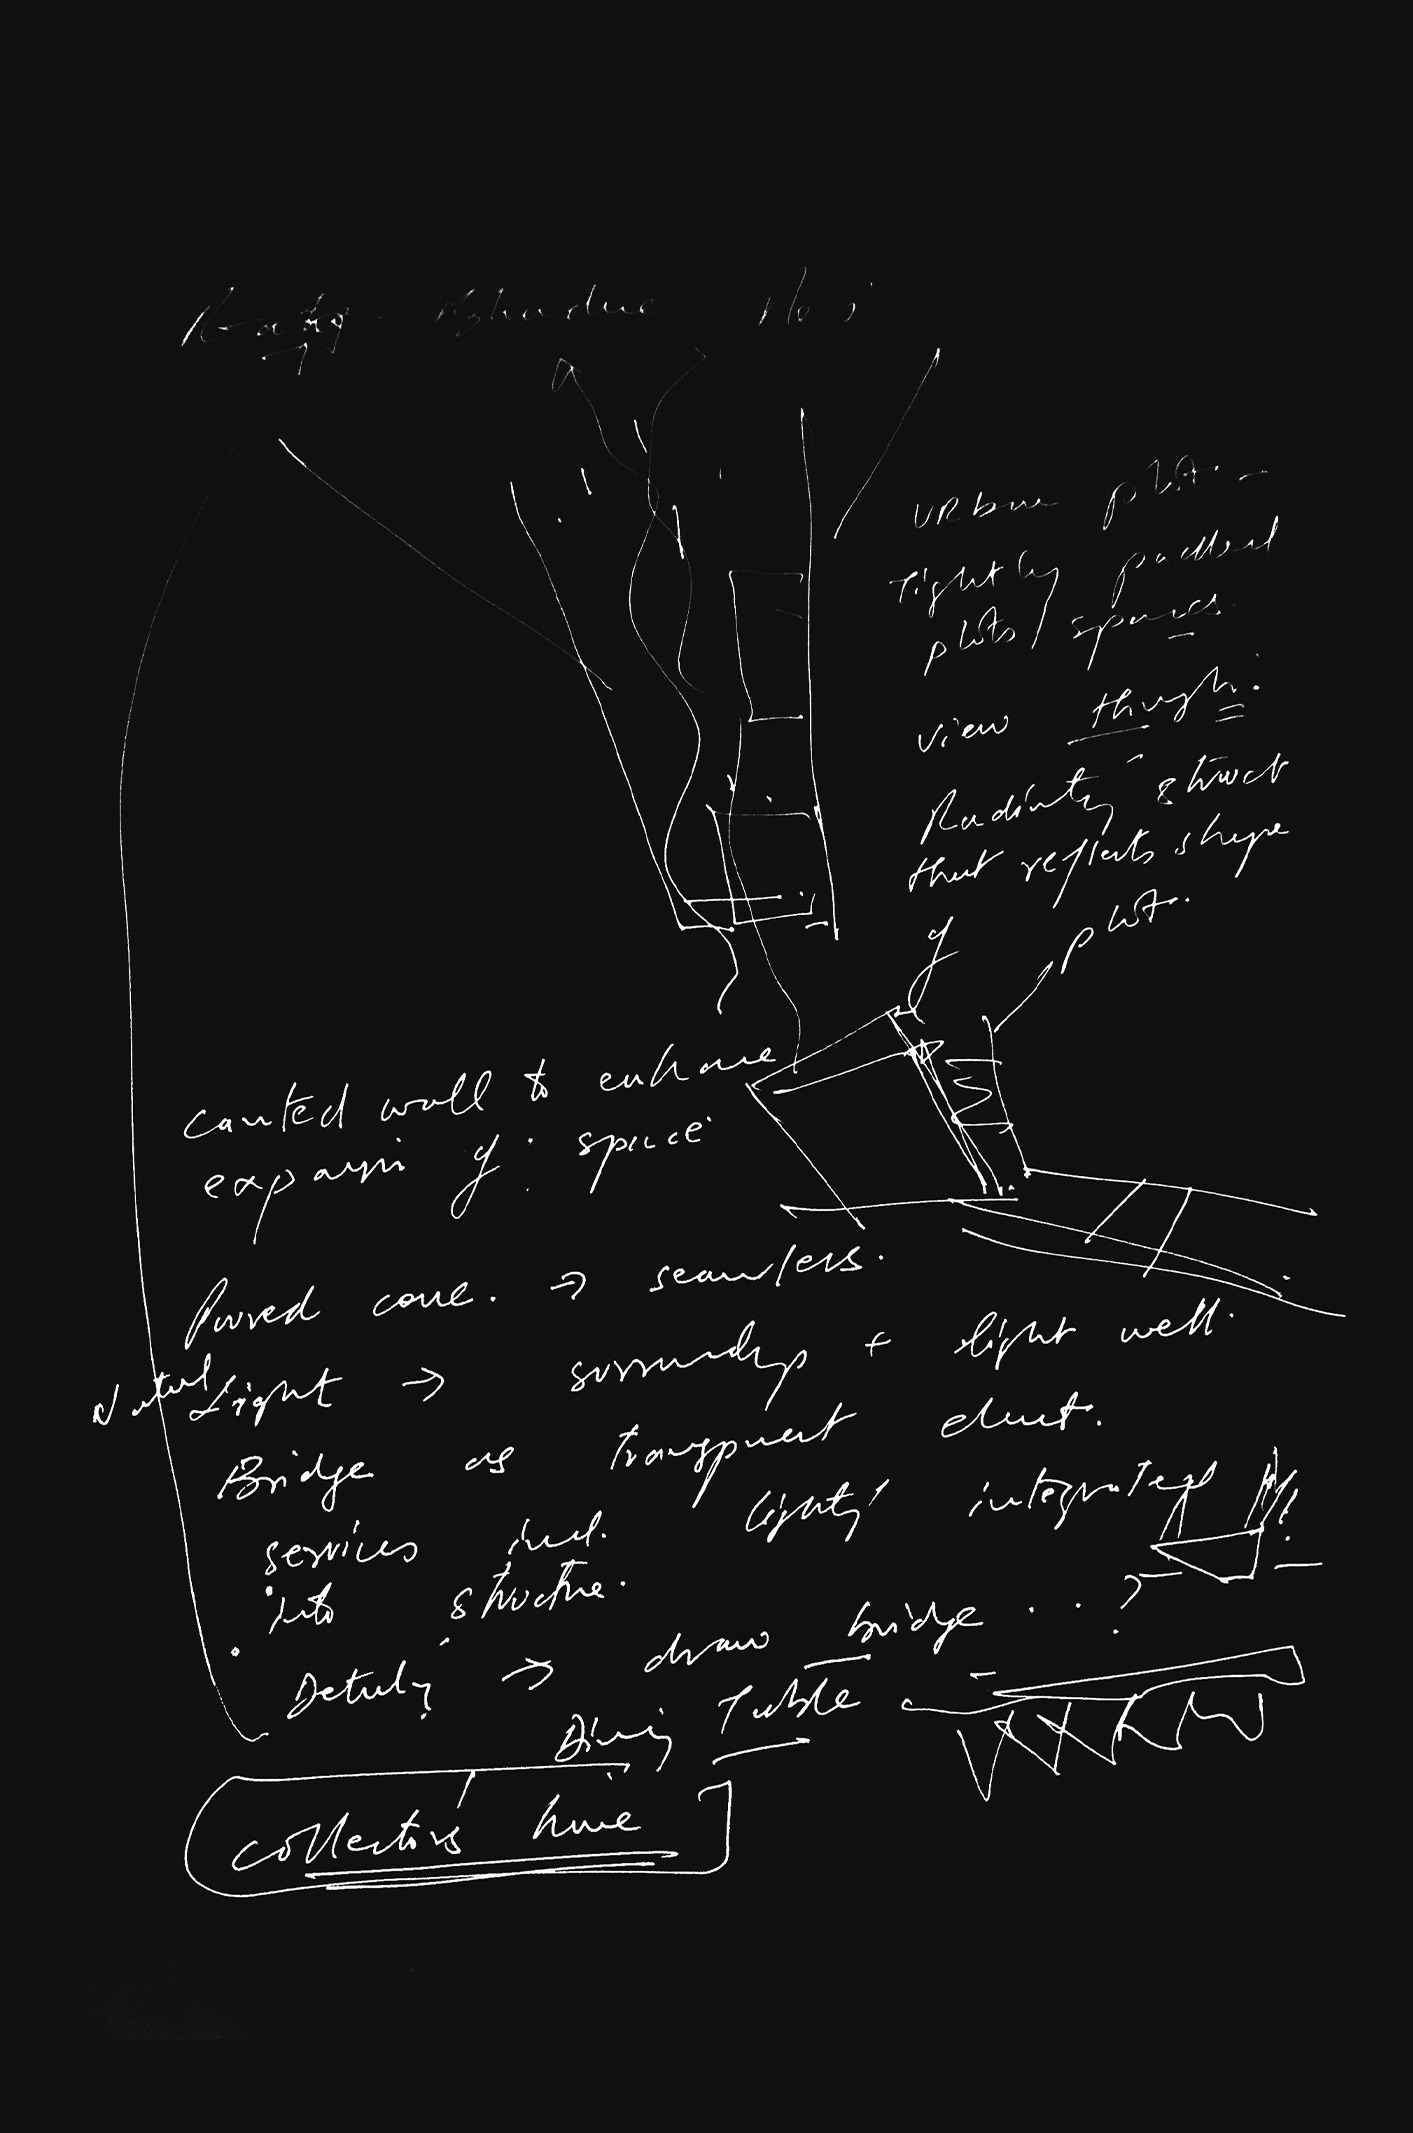 Urban plot. -
Tightly packed
plots / spaces.
View through.
Radiating struct
that reflects shape
of plot.
canted wall to enhance
expansion of space
Poured conc. → seamless.
Natural Light → surroundings + light well.
Bridge as transparent duct.
services incl. lighting integrated
into structure.
Detailing → draw bridge . . ?
Dining Table
collectors